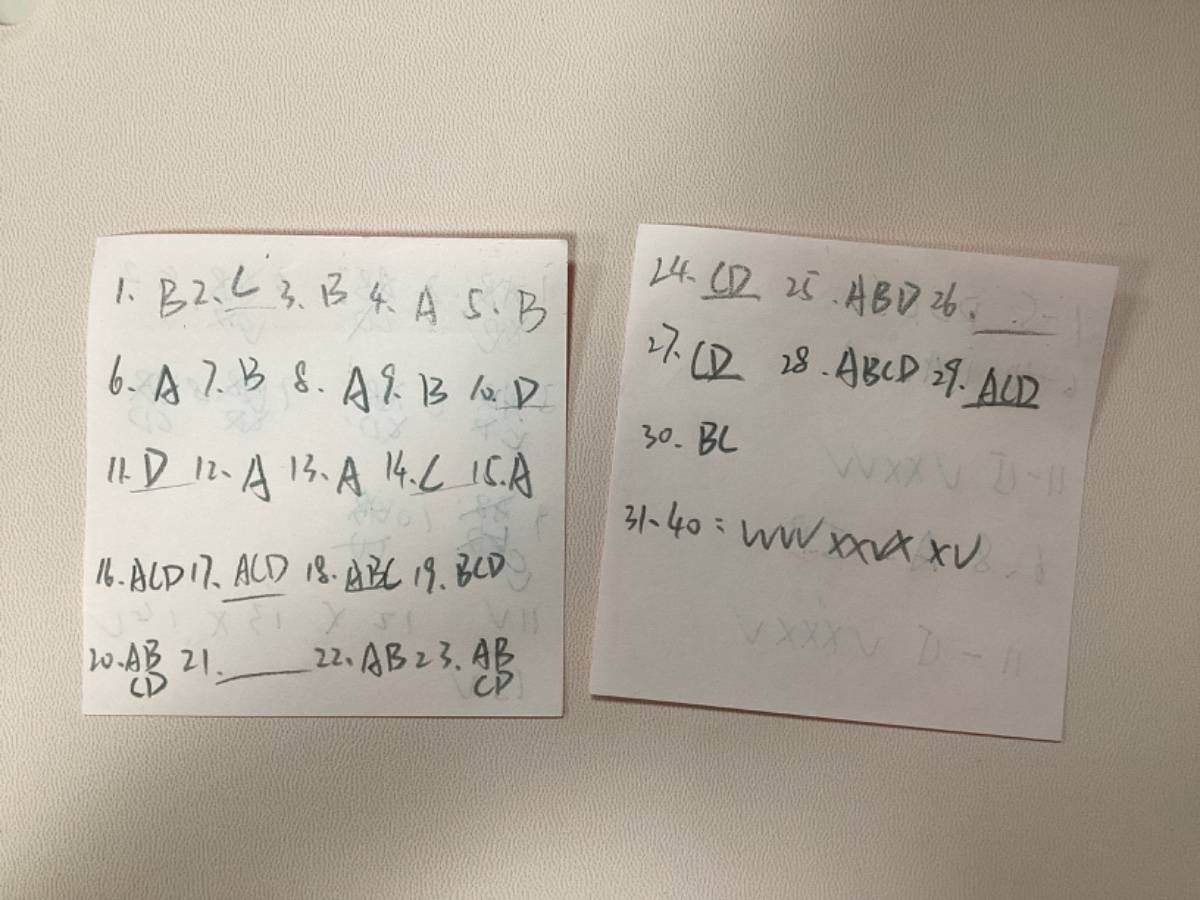 1. B 2. C 3. B 4. A 5. B
6. A 7. B 8. A 9. B 10. D
11. D 12. A 13. A 14. C 15. A
16. ACD 17. ACD 18. ABC 19. BCD
20. AB 21. ____ 22. AB 23. AB
CD CD
24. CD 25. ABD 26. ____
27. CD 28. ABCD 29. ACD
30. BC
31-40: √√√√××√××√